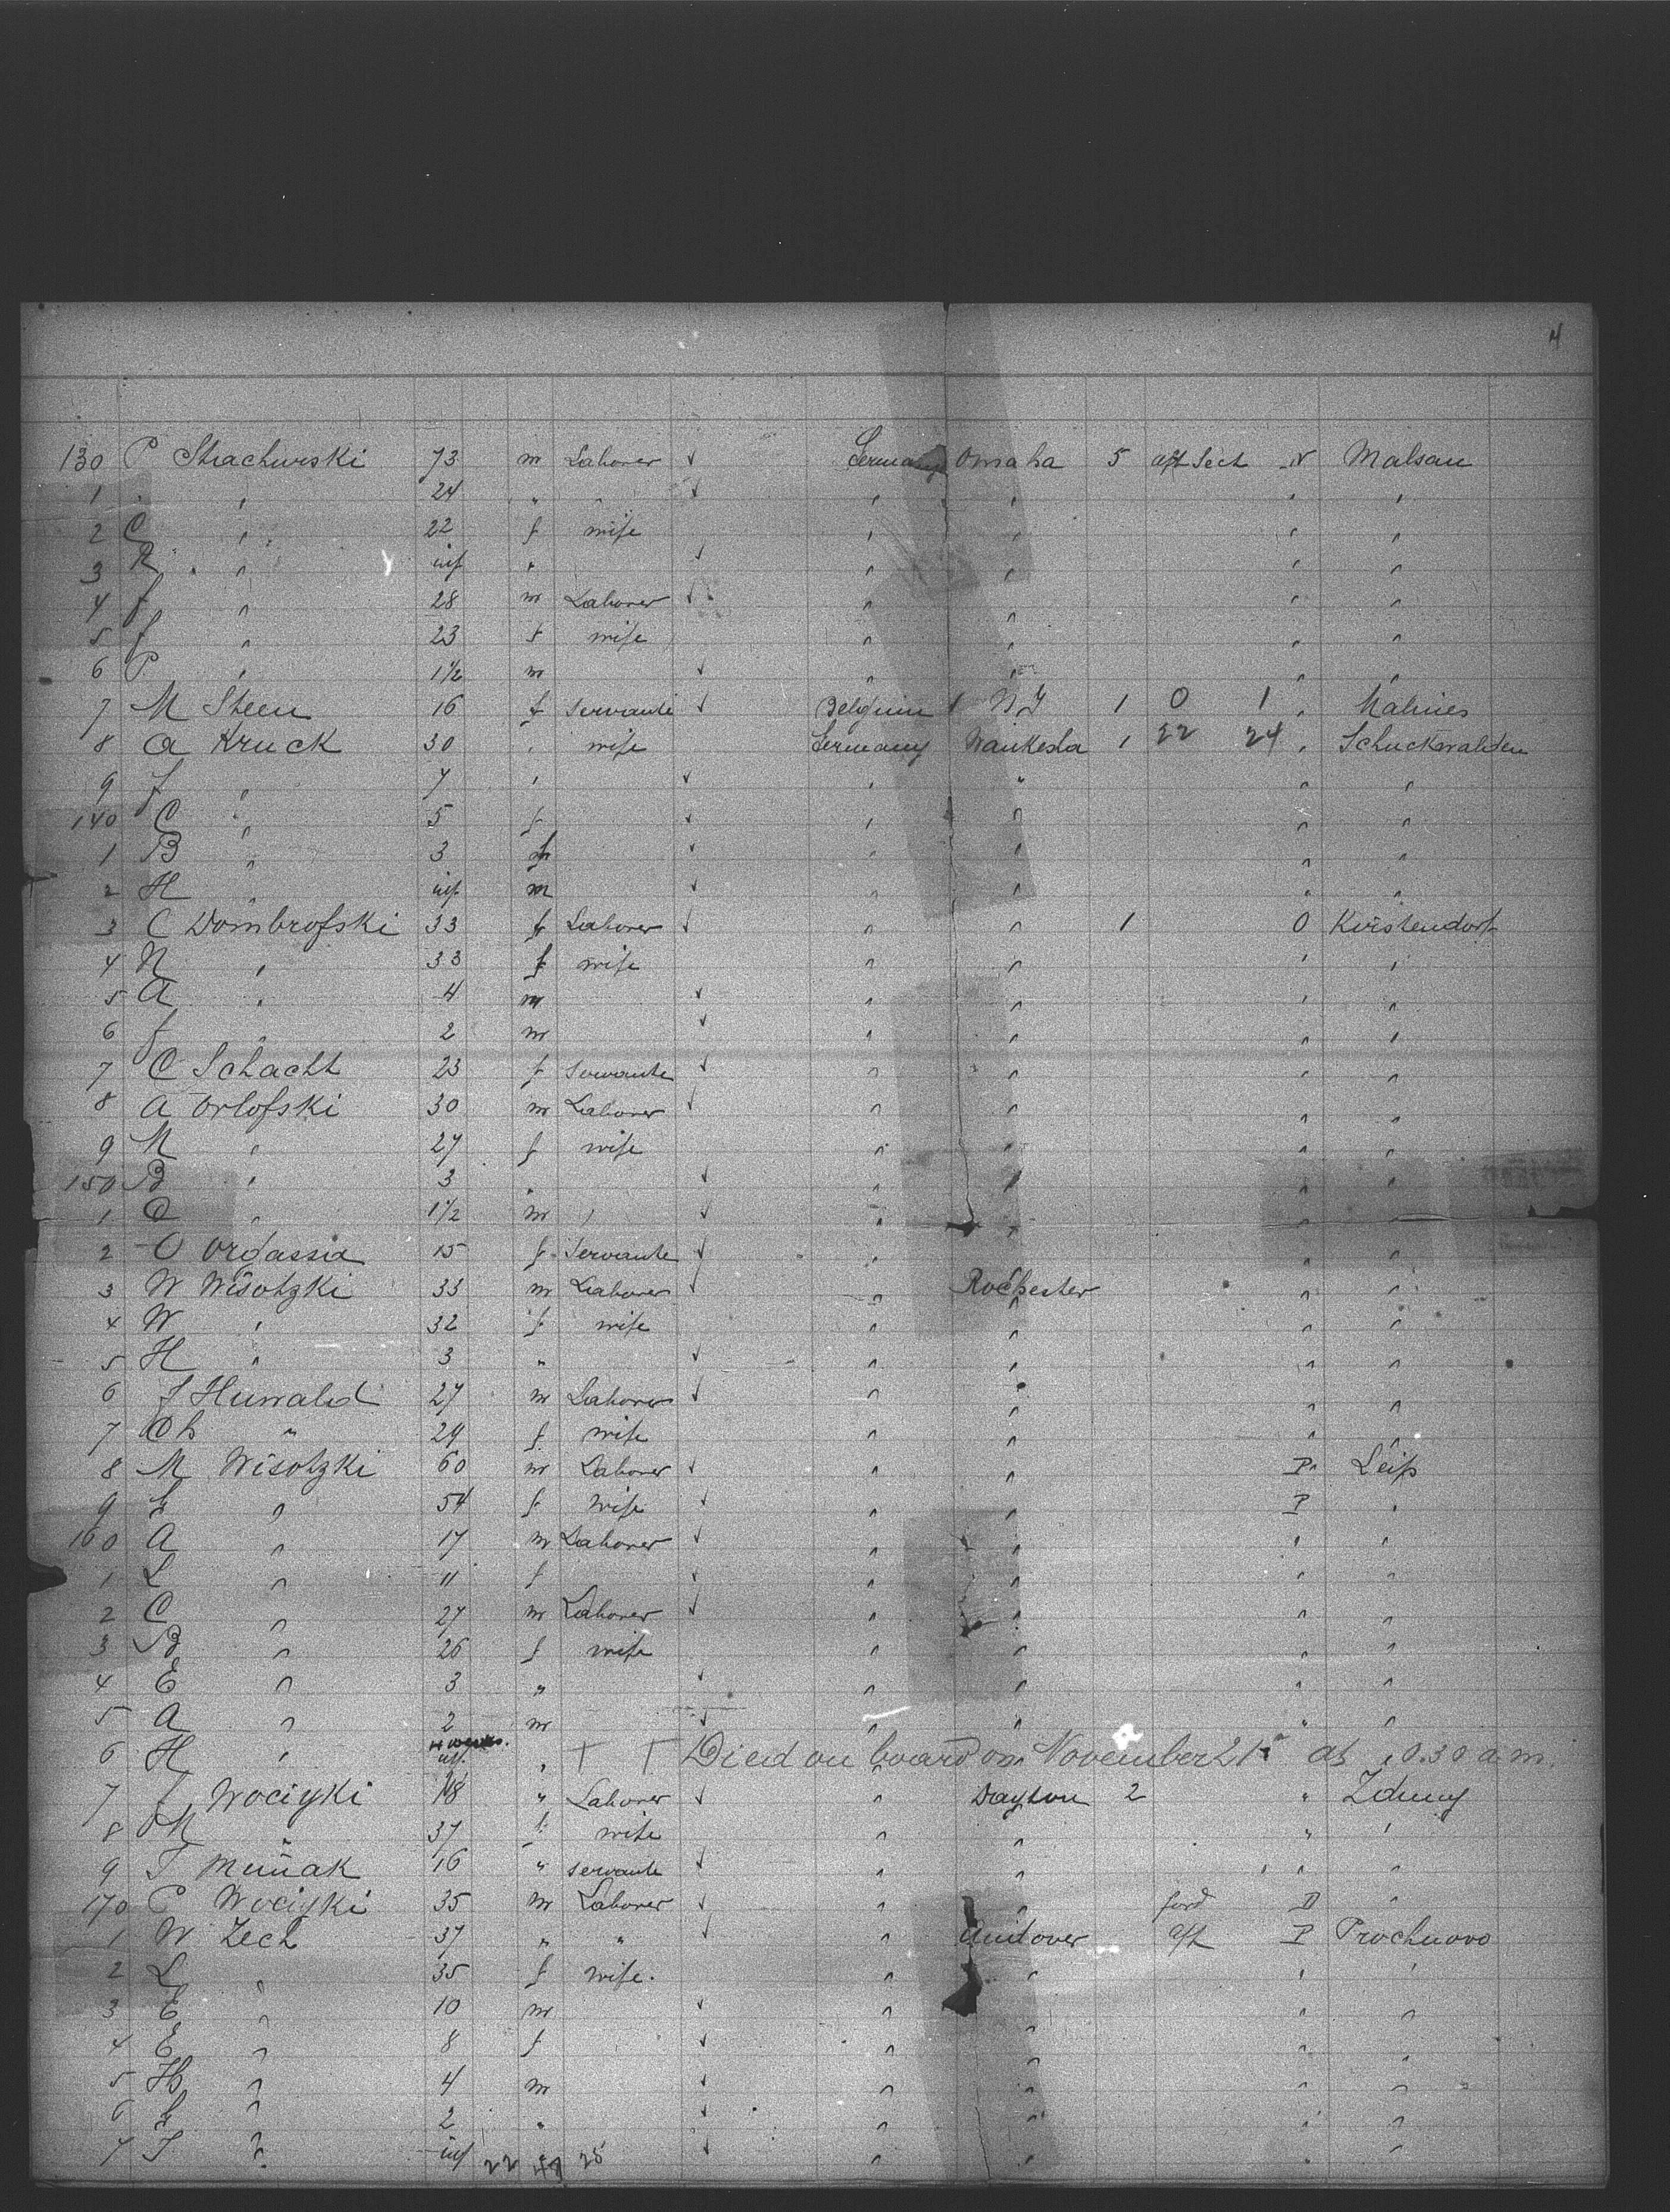 4
130 P Strachurski 73 m Laborer Germany Omaha 5 aft Sect N Malsau
1 " 24 " " " " " "
2 C " 22 f wife " " " "
3 R " inf " " " " "
4 J " 28 m Laborer " " " "
5 J " 23 f wife " " " "
6 P " 1 1/2 m " " " "
7 M Steen 16 f Servante Belgium NY 1 0 1 " Malines
8 A Kruck 30 " wife Germany Waukesha 1 22 24 " Schuckwalden
9 J " 7 " " " " "
140 C " 5 f " " " "
1 B " 3 f " " " "
2 H " inf m " " " "
3 C Dombrofski 33 Laborer " " 1 O Kirstendorf
4 N " 33 f wife " " " "
5 A " 4 m " " " "
6 J " 2 m " " " "
7 C Schacht 23 f Servante " " " "
8 A Orlofski 30 m Laborer " " " "
9 M " 27 f wife " " " "
150 B " 3 " " " " "
1 O " 1 1/2 m " " " "
2 O Orgassia 15 f Servante " " " "
3 W Wisotzki 33 m Laborer " Rochester " "
4 W " 32 f wife " " " "
5 H " 3 " " " " "
6 J Huwald 27 m Laborer " " " "
7 Ch " 24 f wife " " " "
8 M Wisotzki 60 m Laborer " " P " Leip
9 E " 54 f Wife " " P "
160 A " 17 m Laborer " " " "
1 L " 11 f " " " "
2 C " 27 m Laborer " " " "
3 B " 26 f wife " " " "
4 E " 3 " " " " "
5 A " 2 m " " " "
6 H " inf. " † † Died on board on November 21st at 10.30 a.m.
7 J Wociyki 18 " Laborer " Dayton 2 " Zduny
8 M " 37 f wife " " " "
9 J 16 " servante " " " "
170 P Wociyki 35 m Laborer " " ford D "
1 W Zech 37 " " " Andover aft P Prochnovo
2 L " 35 f wife. " " " "
3 E " 10 m " " " "
4 E " 8 f " " " "
5 H " 4 m " " " "
6 E " 2 " " " " "
7 J " inf 22 25 " " "